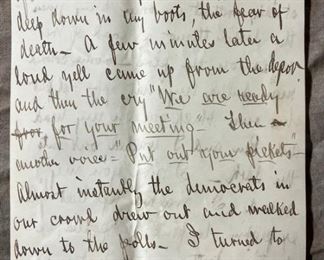 deep down in my boots, the fear of
death — A few minutes later a
loud yell came up from the depot
and then the cry "We are ready
for your meeting — Then a
another voice = "Put out your pickets" —
Almost instantly the democrats in
our crowd drew out and walked
down to the polls — I turned to